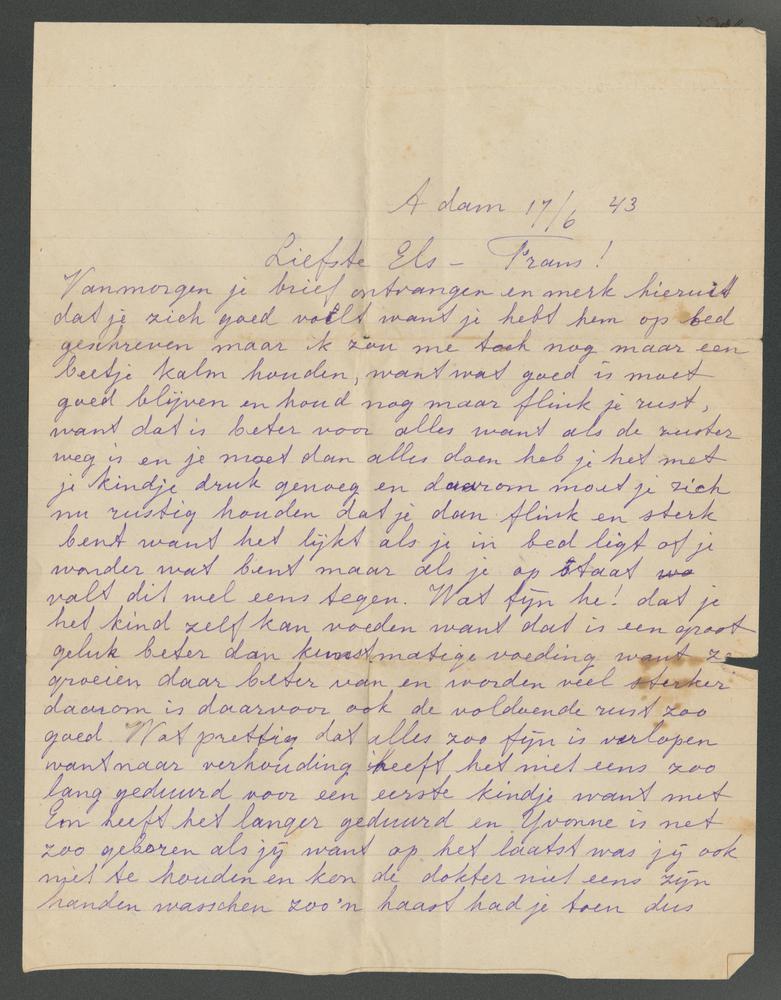 A dam 17/6 43
Liefste Els - Frans!
Vanmorgen je brief ontvangen en merk hieruit
dat je zich goed voelt want je hebt hem op bed
geschreven maar ik zou me toch nog maar een
beetje kalm houden, want wat goed is moet
goed blijven en houd nog maar flink je rust,
want dat is beter voor alles want als de zuster
weg is en je moet dan alles doen heb je het met
je kindje druk genoeg en daarom moet je zich
nu rustig houden dat je dan flink en sterk
bent want het lijkt als je in bed ligt of je
wonder wat bent maar als je op staat
valt dit wel eens tegen. Wat fijn he! dat je
het kind zelf kan voeden want dat is een groot
geluk beter dan kunstmatige voeding want ze
groeien daar beter van en worden veel sterker
daarom is daarvoor ook de voldoende rust zoo
goed. Wat prettig dat alles zoo fijn is verlopen
want naar verhouding heeft het niet eens zoo
lang geduurd voor een eerste kindje want met
heeft het langer geduurd en Yvonne is net
zoo geboren als jij want op het laatst was jij ook
niet te houden en kon de dokter niet eens zijn
handen wasschen zoo'n haast had je toen dus